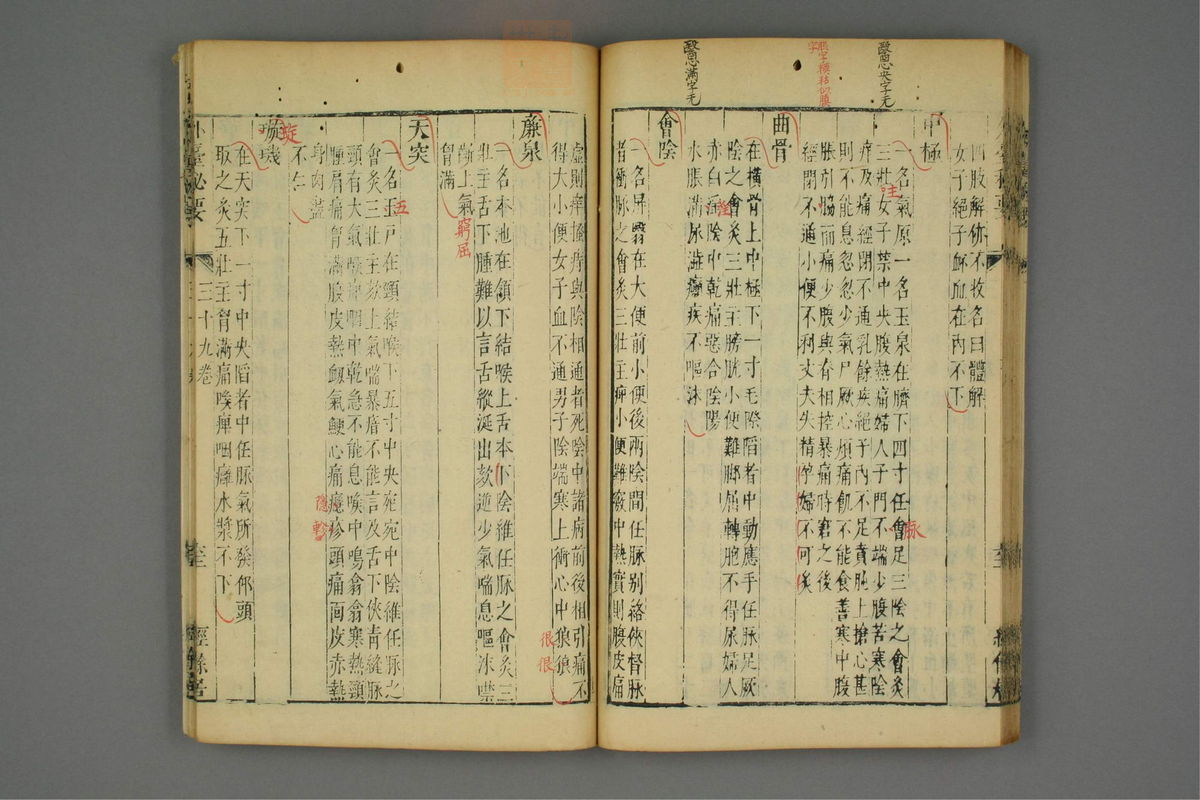 四肢解㑊不收名曰體解
女子絕子衃血在內不下
中極
一名氣原一名玉泉在臍下四寸任會足三陰之會灸
脉
三壯女子禁中央腹熱痛婦人子門不端少腹苦寒陰
痒及痛經閉不通乳餘疾絕子內不足賁㹠上搶心甚
則不能息忽忽少氣尸厥心煩痛飢不能食善寒中腹
脹引脇而痛少腹與脊相控暴痛時窘之後
經閉不通小便不利丈夫失精孕婦不可灸
曲骨
在橫骨上中極下一寸毛際陷者中動應手任脉足厥
陰之會灸三壯主膀胱小便難脚屈轉胞不得尿婦人
赤白陰中乾痛惡合陰陽
水脹滿尿澀癲疾不嘔沫
會陰
一名屏翳在大便前小便後兩陰間任脉别絡俠督脉
者衝脉之會灸三壯主痹小便難竅中熱實則腹皮痛
醫心央字无
醫心滿字毛
虛則痒搔痒與陰相通者死陰中諸病前後相引痛不
得大小便女子血不通男子陰端寒上衝心中狼狼
很很
廉泉
一名本池在頷下結喉上舌本下陰維任脉之會灸三
壯主舌下腫難以言舌縱涎出欬逆少氣喘息嘔沫噤
齘上氣窮屈
胷滿
天突
一名玉戸在頸結喉下五寸中央宛宛中陰維任脉之
五
會灸三壯主欬上氣喘暴瘖不能言及舌下俠青縫脉
頸有大氣喉痹咽中乾急不能息喉中鳴翕翕寒熱頸
腫肩痛胷滿腹皮熱衂氣鯁心痛癮疹頭痛面皮赤熱
隱軫
身肉盡
不仁
璇璣
琁
在天突下一寸中央陷者中任脉氣所發仰頭
取之灸五壯主胷滿痛喉痹咽癰水漿不下
外臺祕要
三十九卷
經餘居